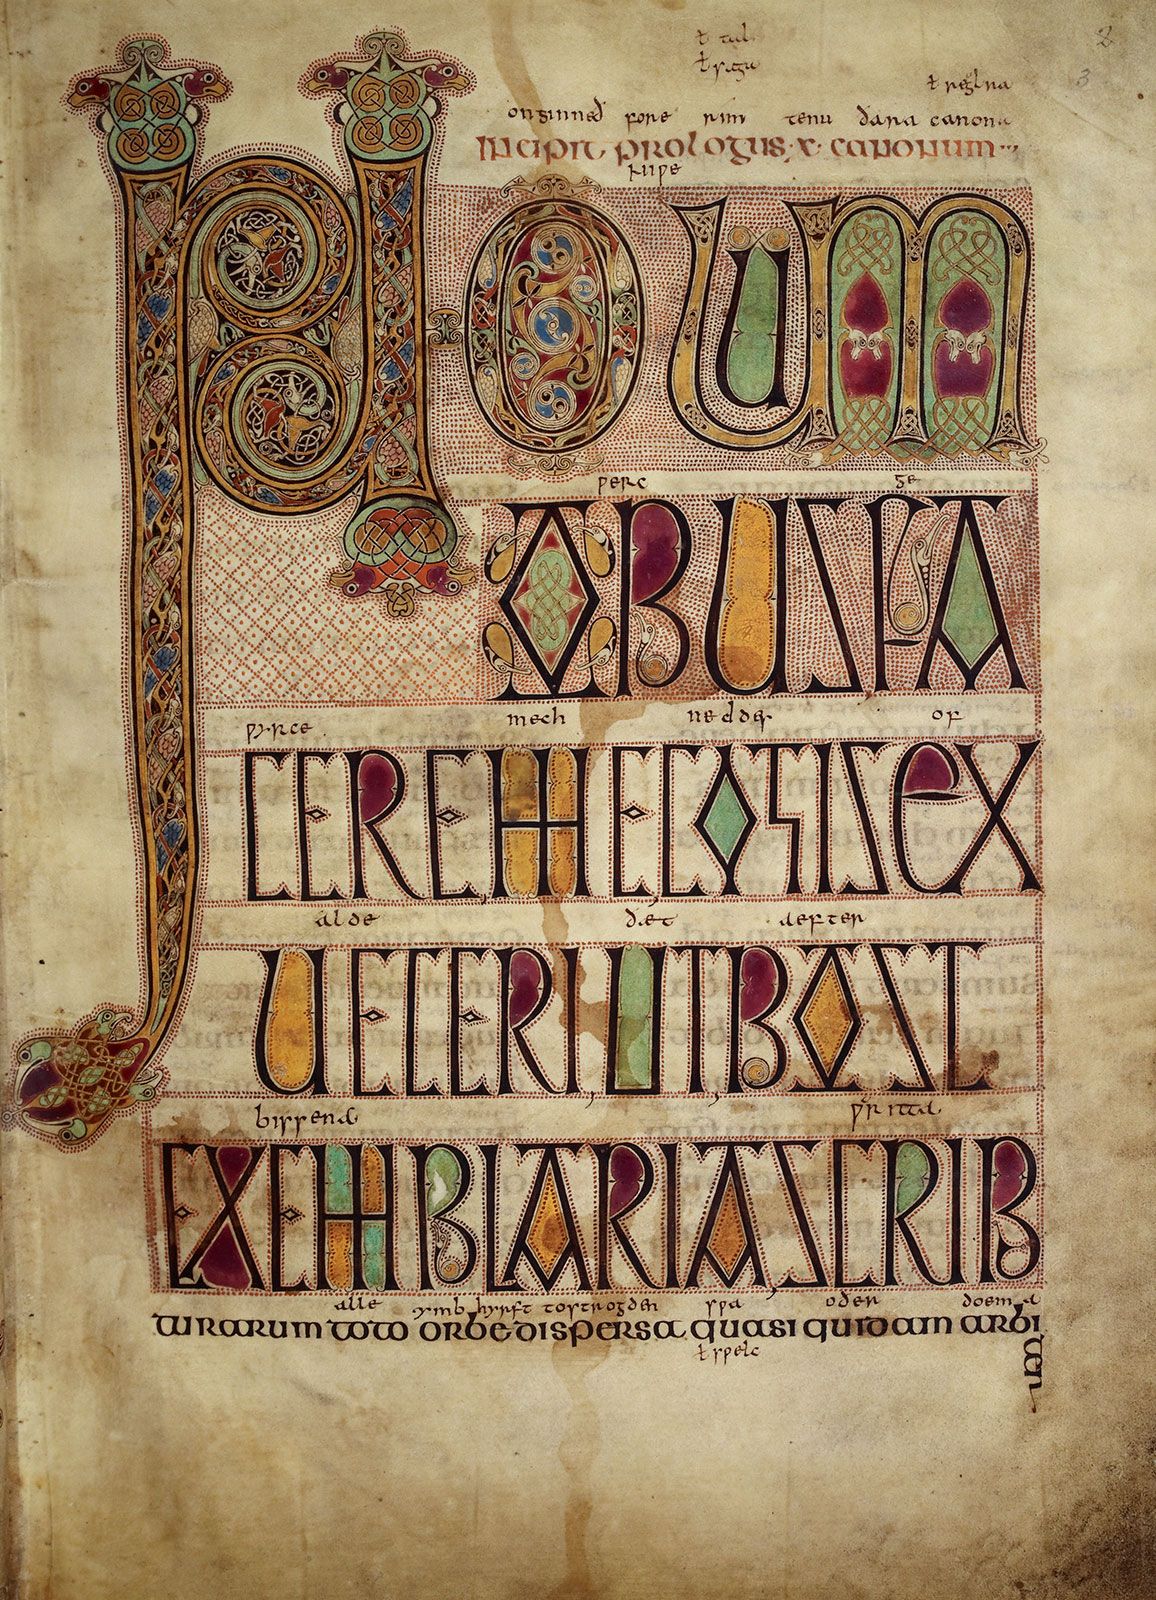 2
ł tal
3
onginneð fore rim tenu ðara canona
Incipit prologus · x · canonum
niƿe
NOUUM
ƿerc ge
OPUSFA
ƿyrce mech neddes of
CEREMECOGISEX
alde ðæt aefter
UETERIUTPOST
ƿritta
EXEMPLARIASCRIB
alle ymb hyrft tostrogden sƿa oðer doema
turarum toto orbe dispersa quasi quidam arbi
ter
ł sƿelc